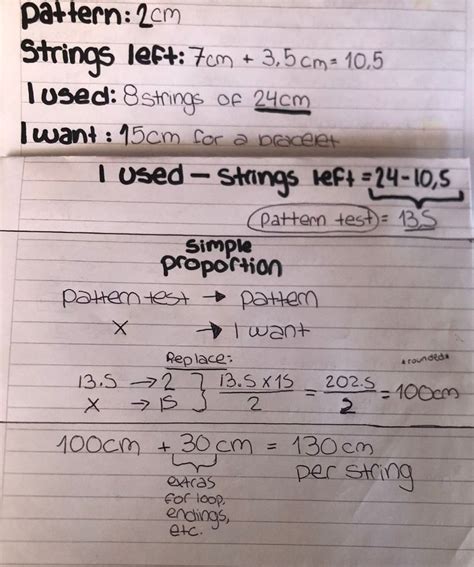 pattern: 2cm
Strings left: 7cm + 3,5cm = 10,5
I used: 8 strings of 24cm
I want: 15cm for a bracelet
I used - Strings left = 24-10,5
pattern test = 13,5
simple
proportion
pattern test → pattern
X → I want
Replace:
*rounded*
13.5 → 2 } 13.5 x 15 / 2 = 202.5 / 2 = 100cm
X → 15
100cm + 30cm = 130cm
per string
extras
for loop,
endings,
etc.